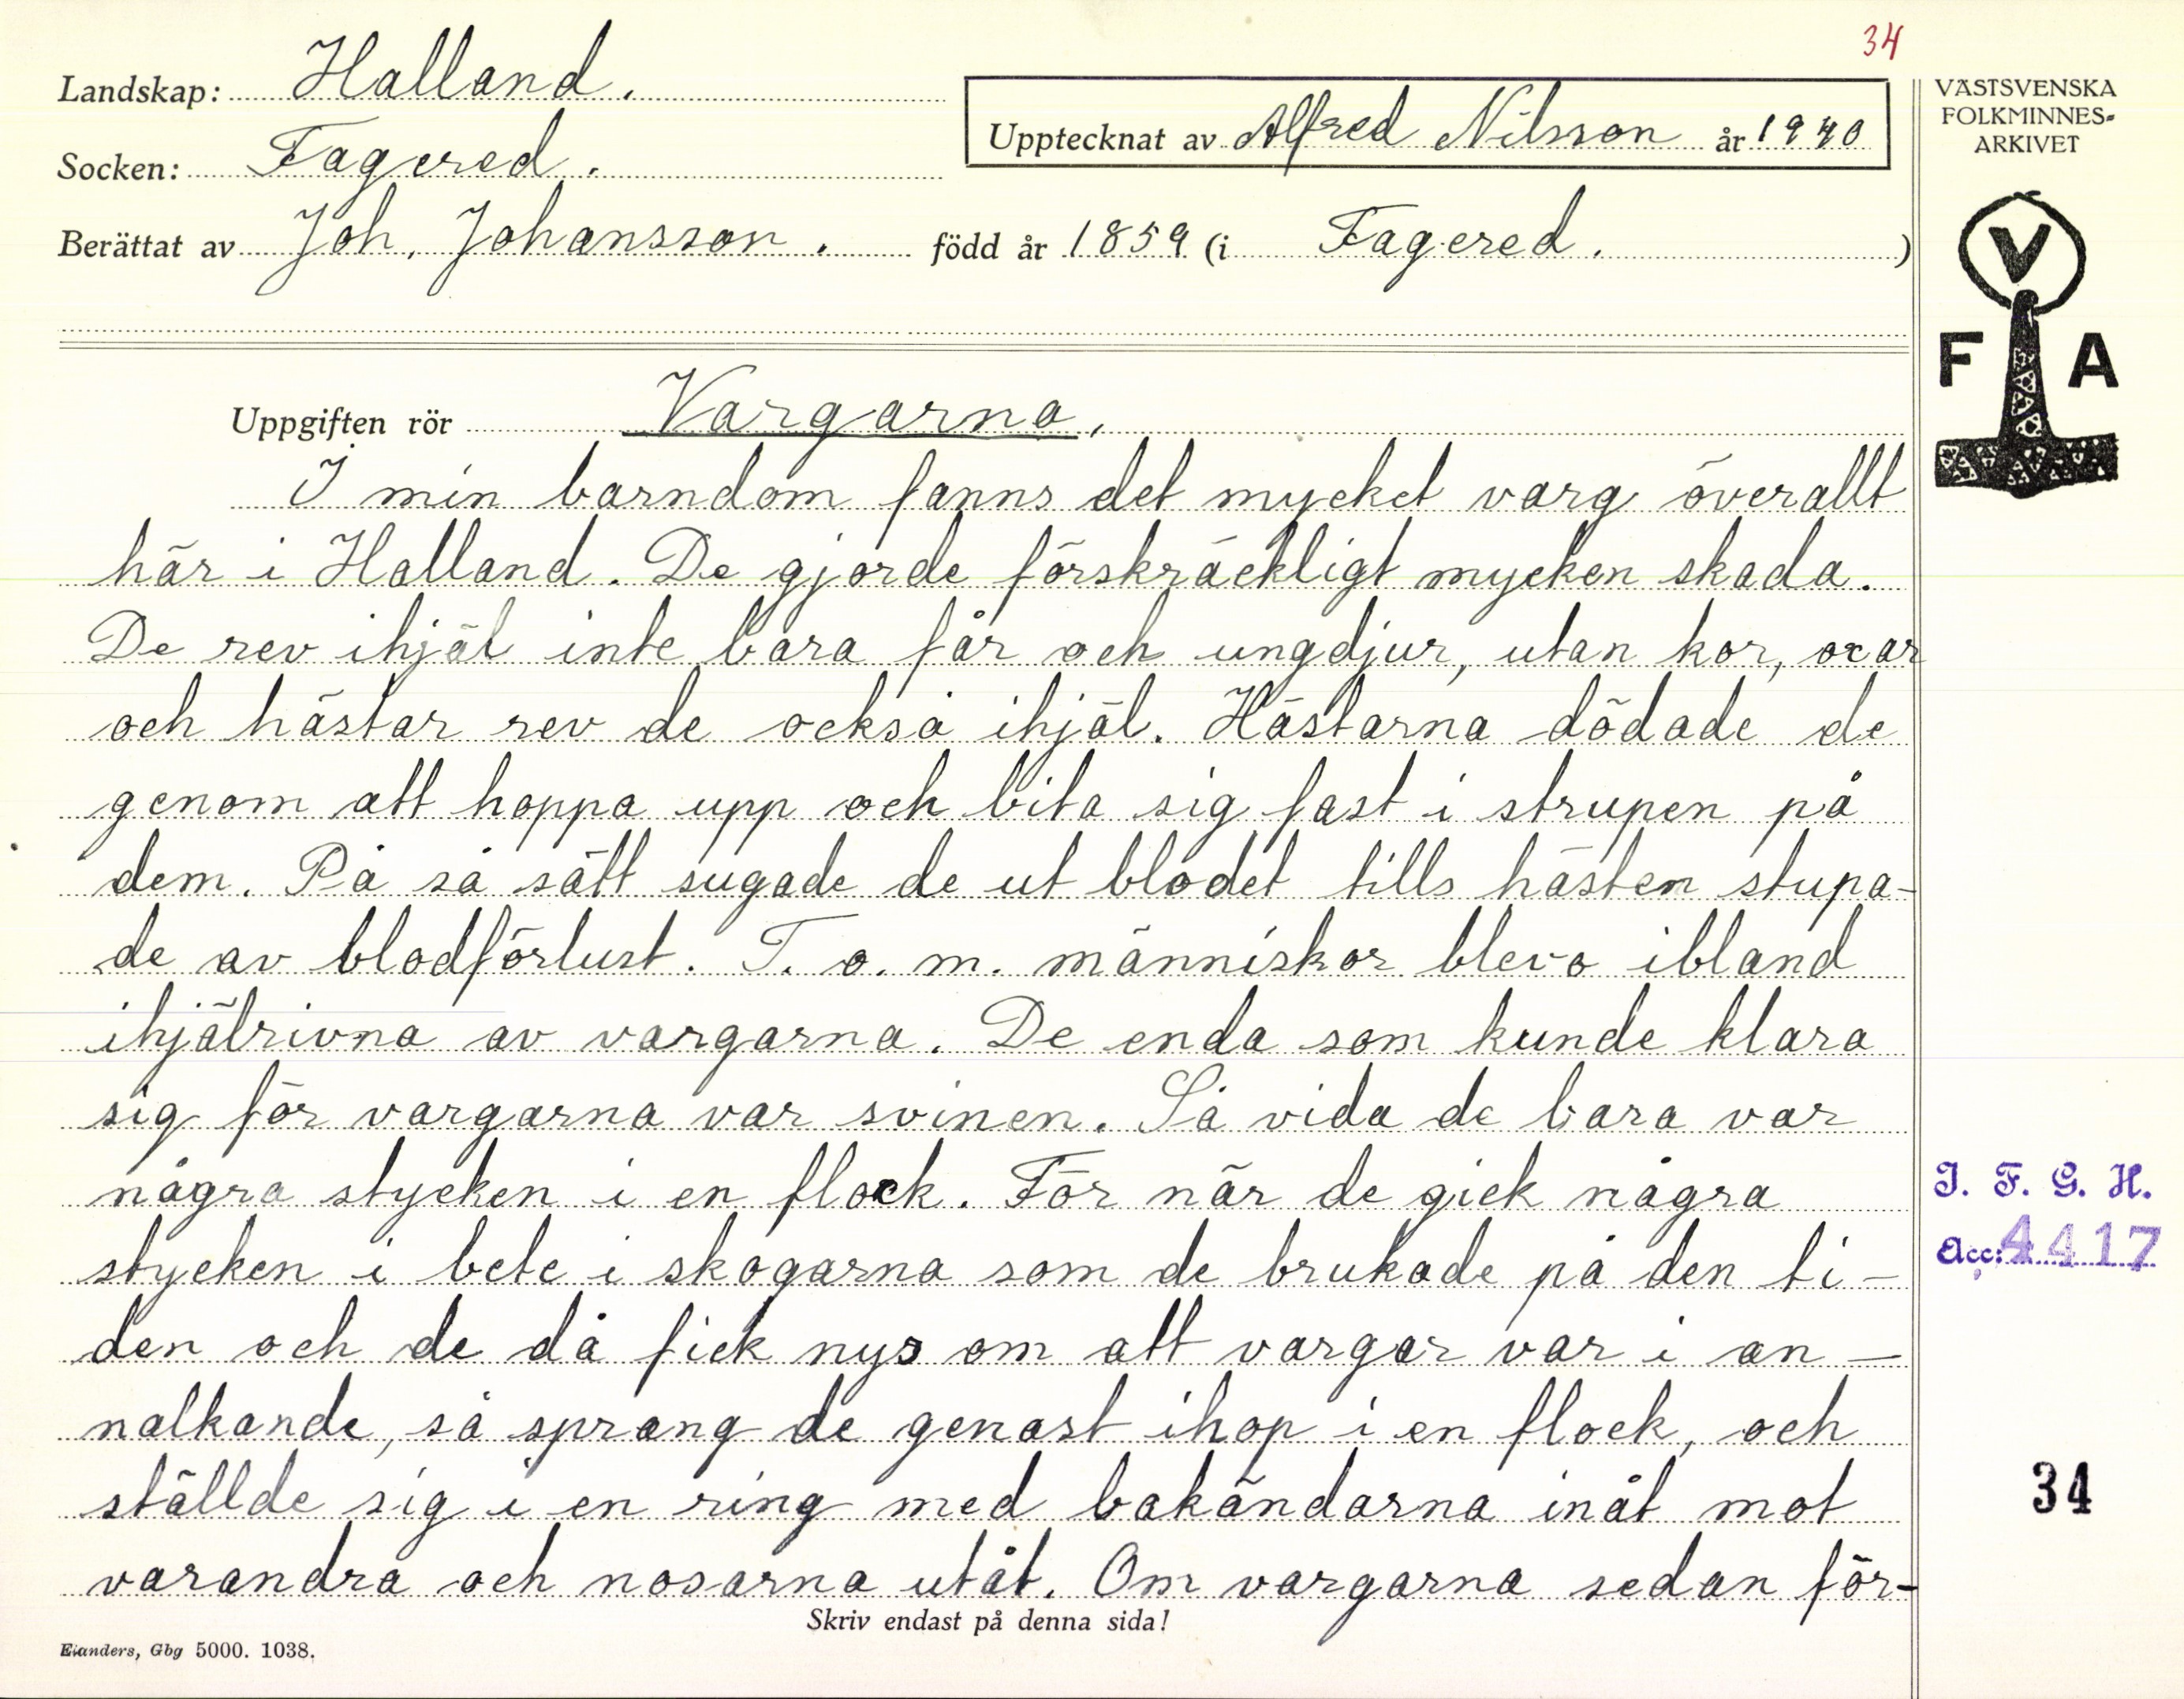 34
Landskap: Halland.
Socken: Fagered.
Upptecknat av Alfred Nilsson år 1940
Berättat av Joh. Johansson. född år 1859 (i Fagered.)
VÄSTSVENSKA
FOLKMINNES-
ARKIVET
V
F A
Uppgiften rör Vargarna.
I min barndom fanns det mycket varg överallt
här i Halland. De gjorde förskräckligt mycken skada.
De rev ihjäl inte bara får och ungdjur, utan kor, oxar
och hästar rev de också ihjäl. Hästarna dödade de
genom att hoppa upp och bita sig fast i strupen på
dem. På så sätt sugade de ut blodet tills hästen stupa-
de av blodförlust. T. o. m. människor blevo ibland
ihjälrivna av vargarna. De enda som kunde klara
sig för vargarna var svinen. Så vida de bara var
några stycken i en flock. För när de gick några
stycken i bete i skogarna som de brukade på den ti-
den och de då fick nys om att vargar var i an-
nalkande, så sprang de genast ihop i en flock, och
ställde sig i en ring med bakändarna inåt mot
varandra och nosarna utåt. Om vargarna sedan för-
I. F. G. H.
Acc: 4417
34
Skriv endast på denna sida!
Elanders, Gbg 5000. 1038.